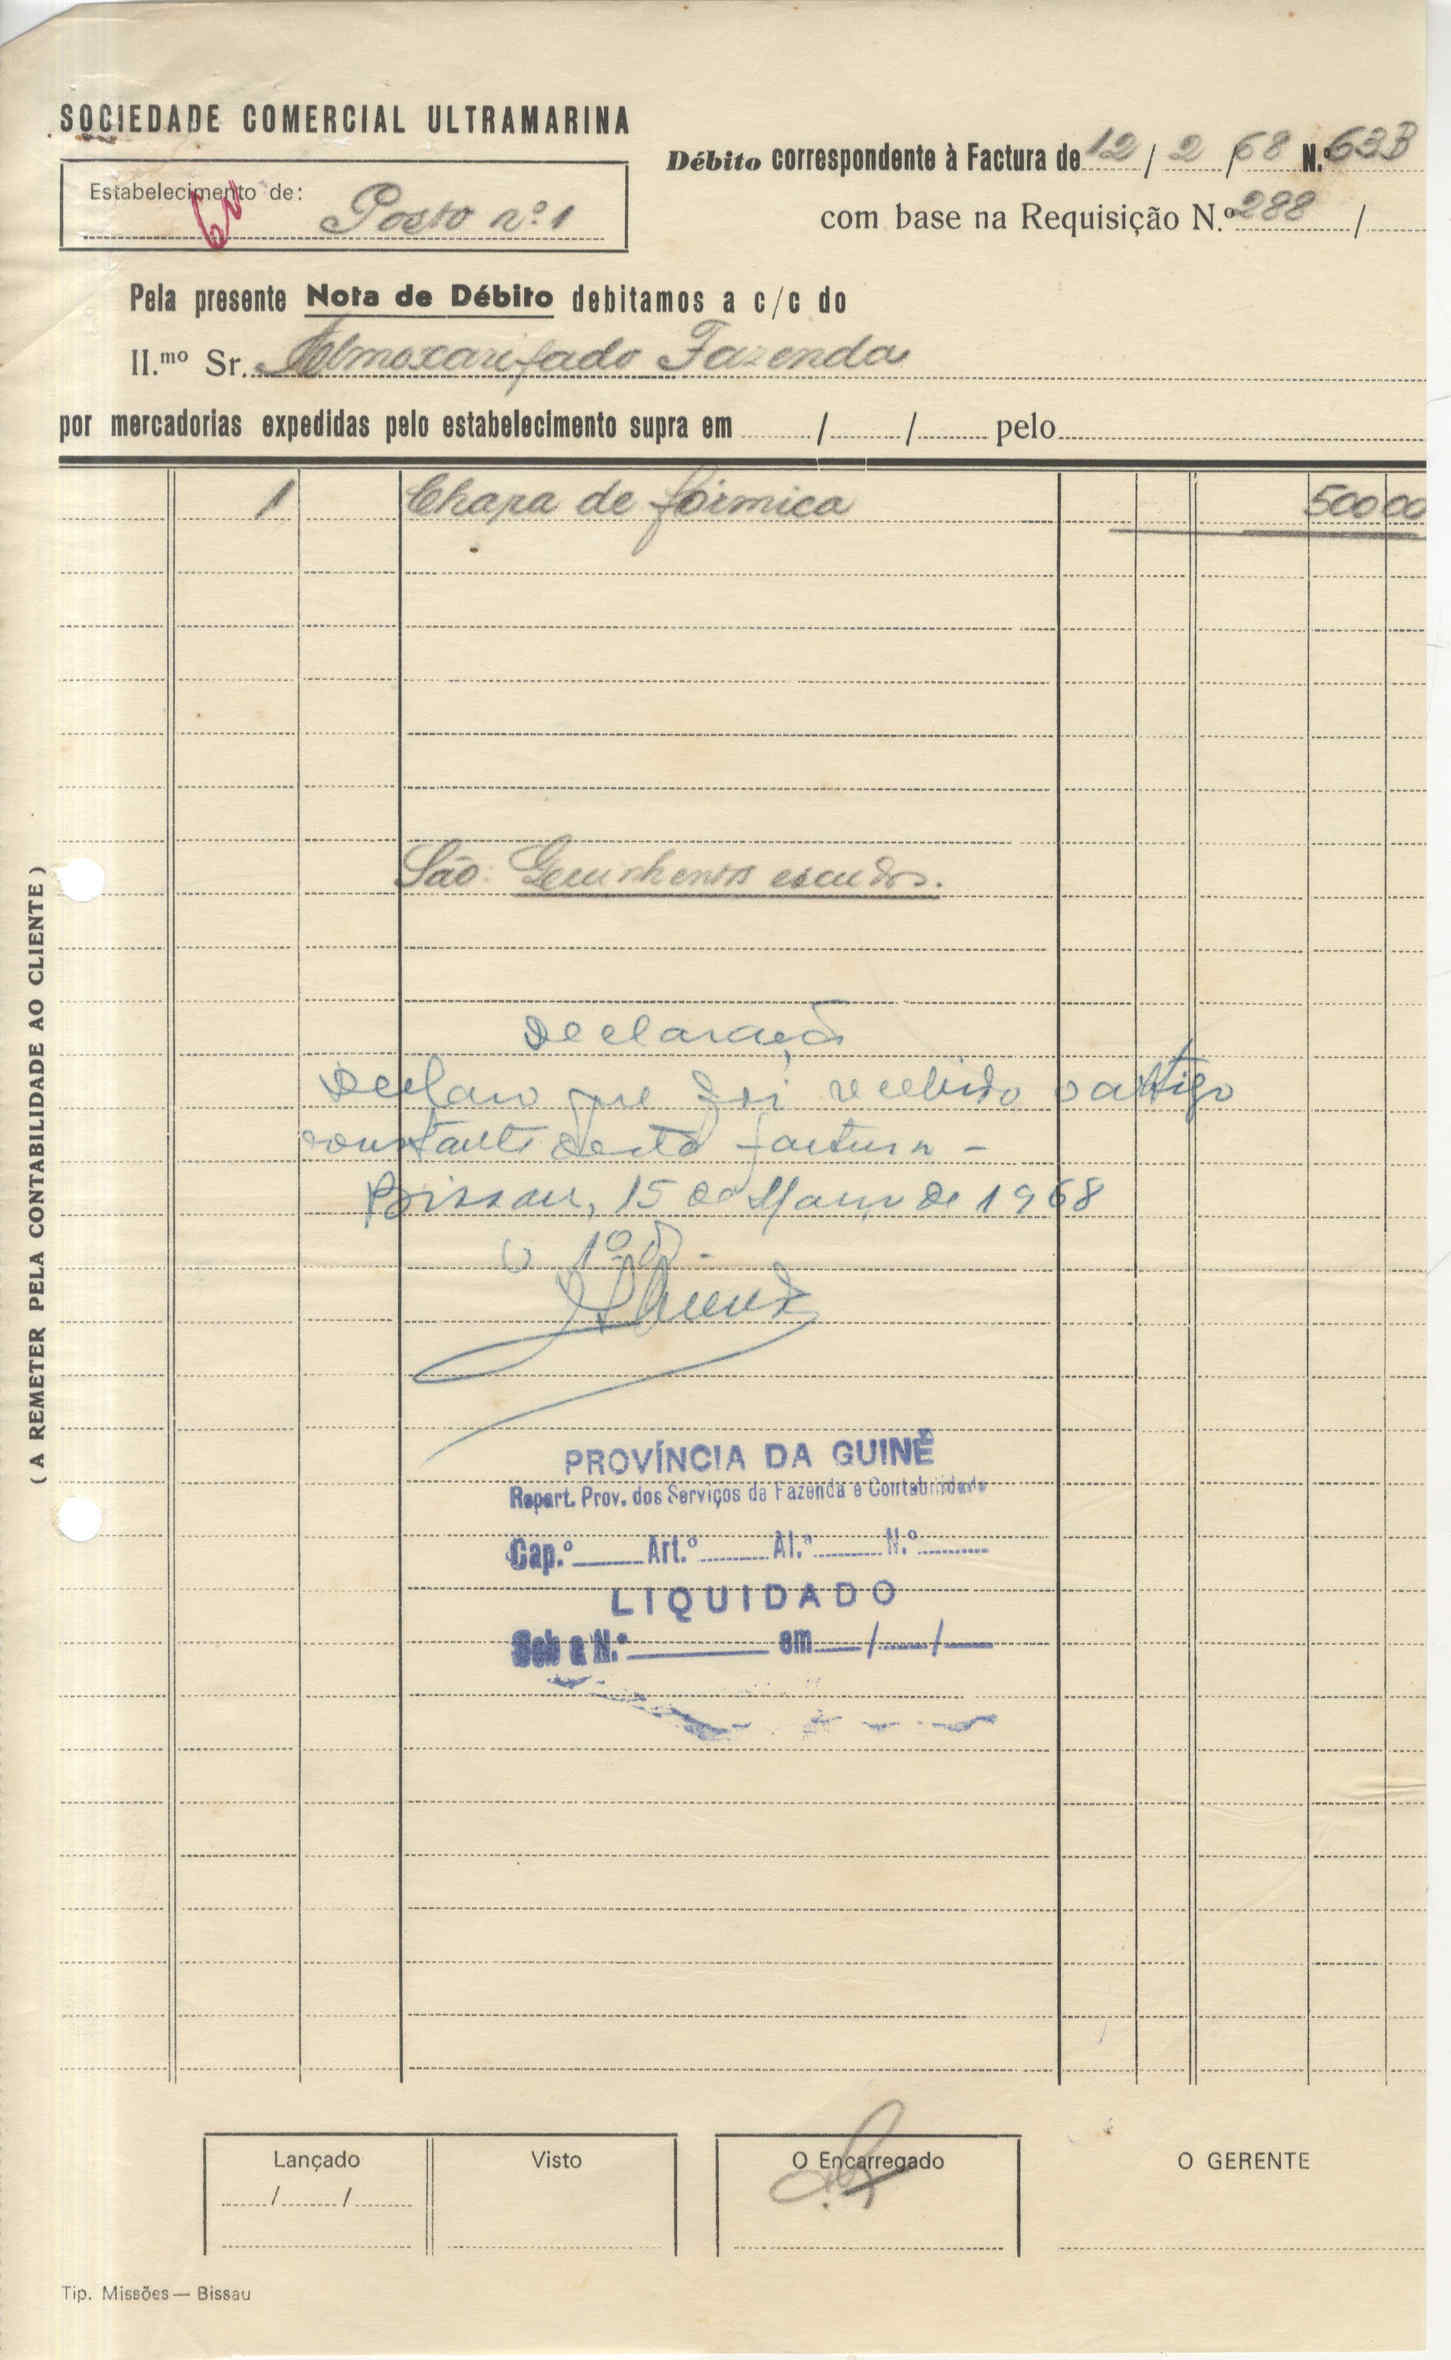 SOCIEDADE COMERCIAL ULTRAMARINA
Débito correspondente à Factura de 12 / 2 / 68 N.º 63B
Estabelecimento de: Posto nº 1
com base na Requisição N.º 288 /
Pela presente Nota de Débito debitamos a c/c do
Il.mo Sr. Almoxarifado Fazenda
por mercadorias expedidas pelo estabelecimento supra em / / pelo
1 Chapa de fórmica 500 00
São: Quinhentos escudos.
Declaração
Declaro que foi recebido o artigo
constante desta factura -
Bissau, 15 de Março de 1968
O 1º
PROVÍNCIA DA GUINÉ
Repart. Prov. dos Serviços de Fazenda e Contabilidade
Cap.º Art.º Al.ª N.º
LIQUIDADO
Sob o N.º em / /
(A REMETER PELA CONTABILIDADE AO CLIENTE)
Lançado Visto O Encarregado O GERENTE
/ /
Tip. Missões — Bissau